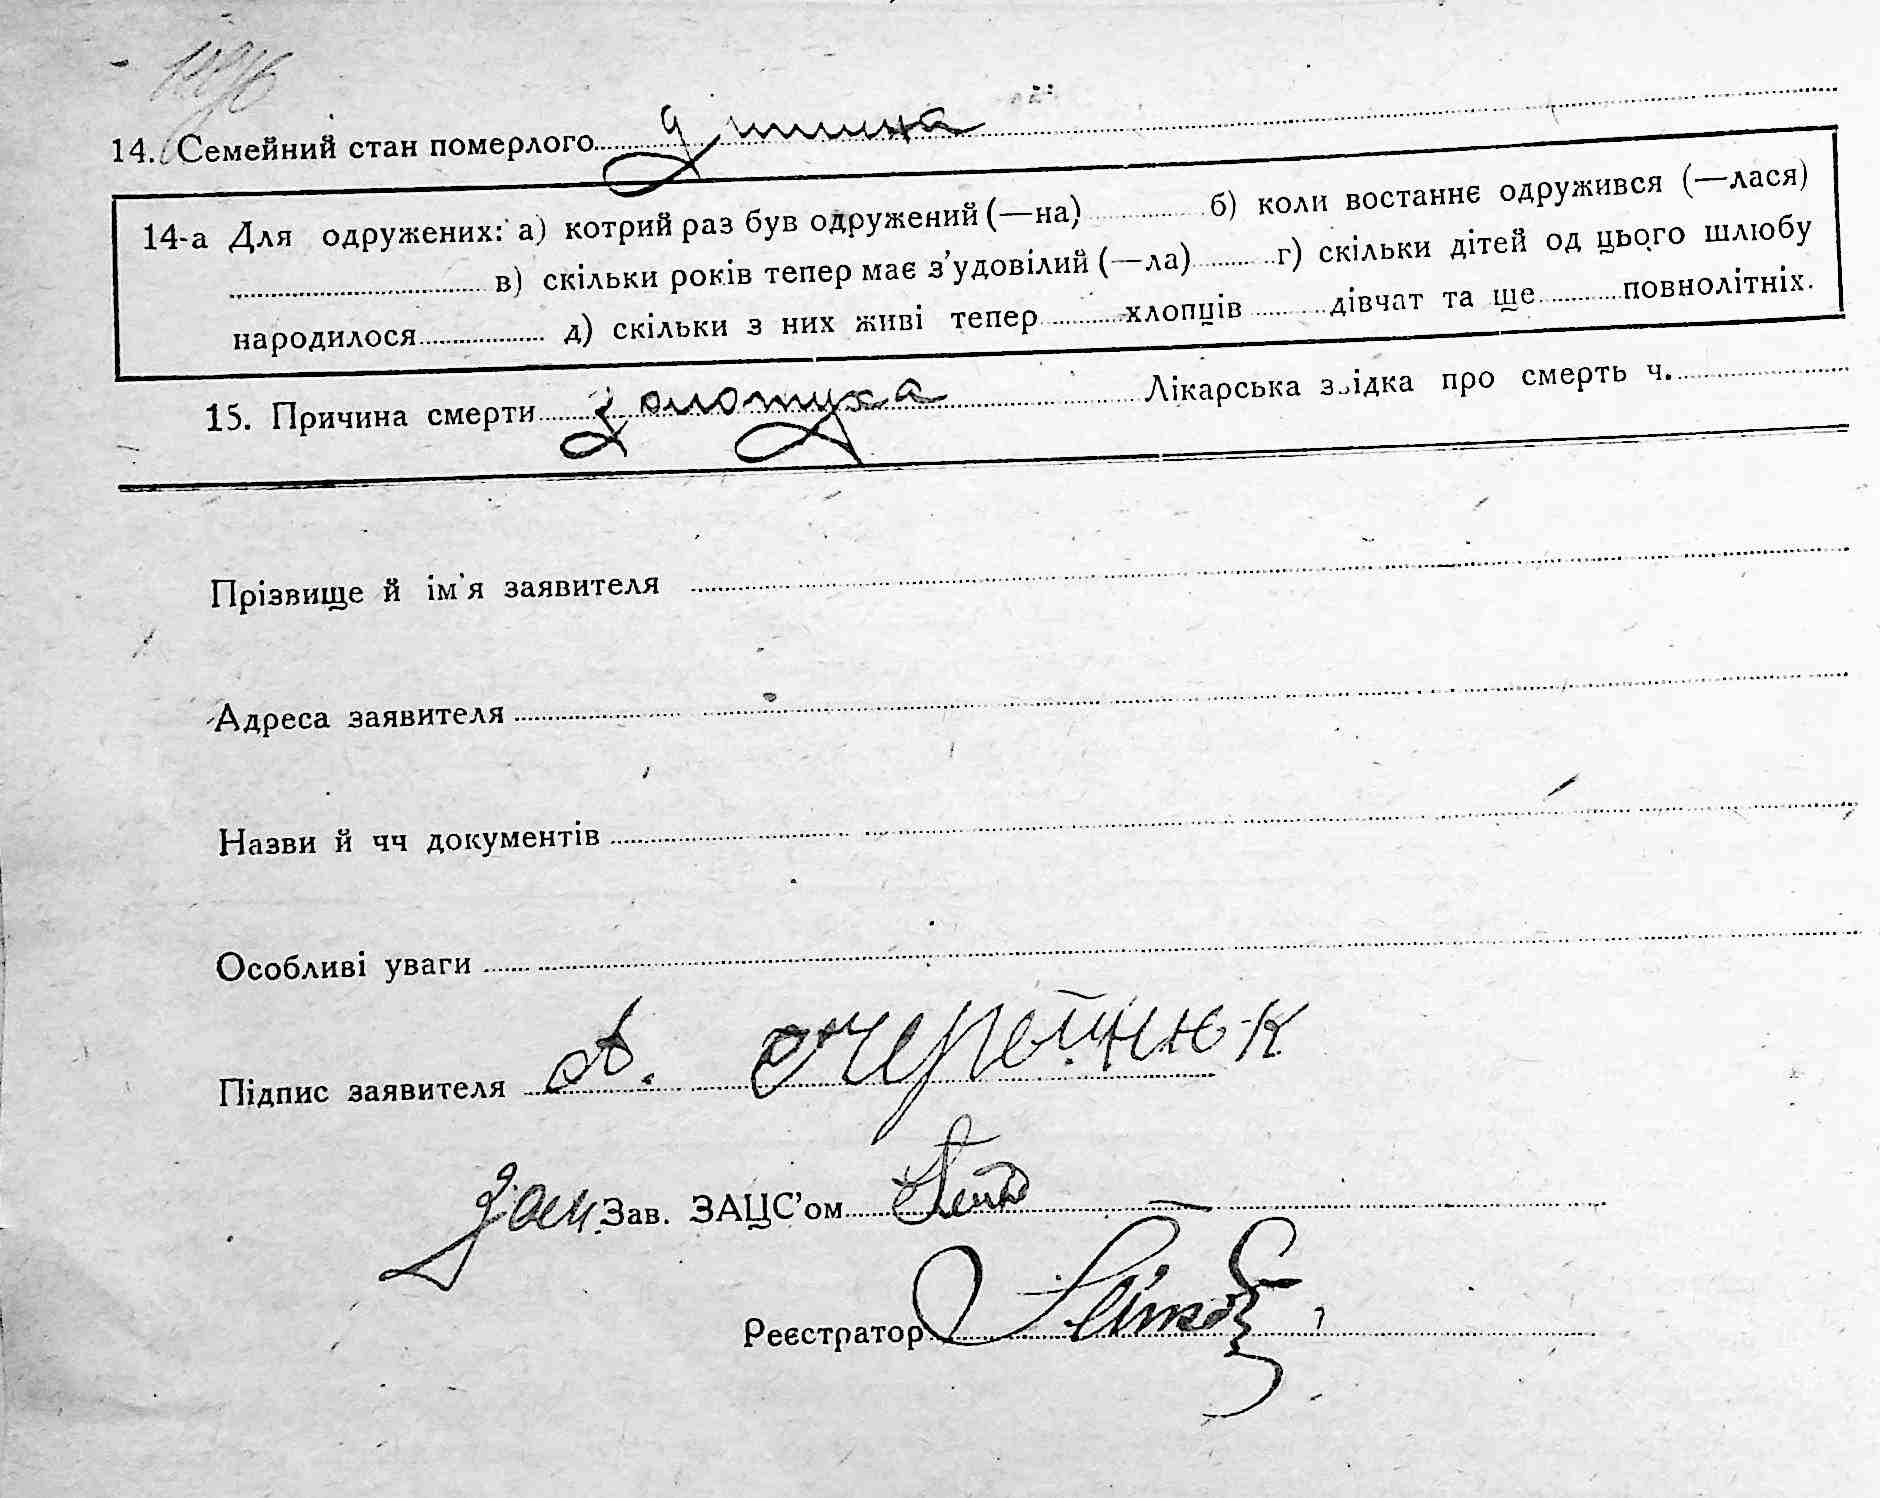 14. Семейний стан померлого дитина
14-а Для одружених: а) котрий раз був одружений (—на) б) коли востаннє одружився (—лася)
в) скільки років тепер має з’удовілий (—ла) г) скільки дітей од цього шлюбу
народилося д) скільки з них живі тепер хлопців дівчат та ще повнолітніх.
15. Причина смерти золотуха Лікарська звідка про смерть ч.
Прізвище й ім'я заявителя
Адреса заявителя
Назви й чч документів
Особливі уваги
Підпис заявителя А.
Зав. ЗАЦС’ом
Реєстратор